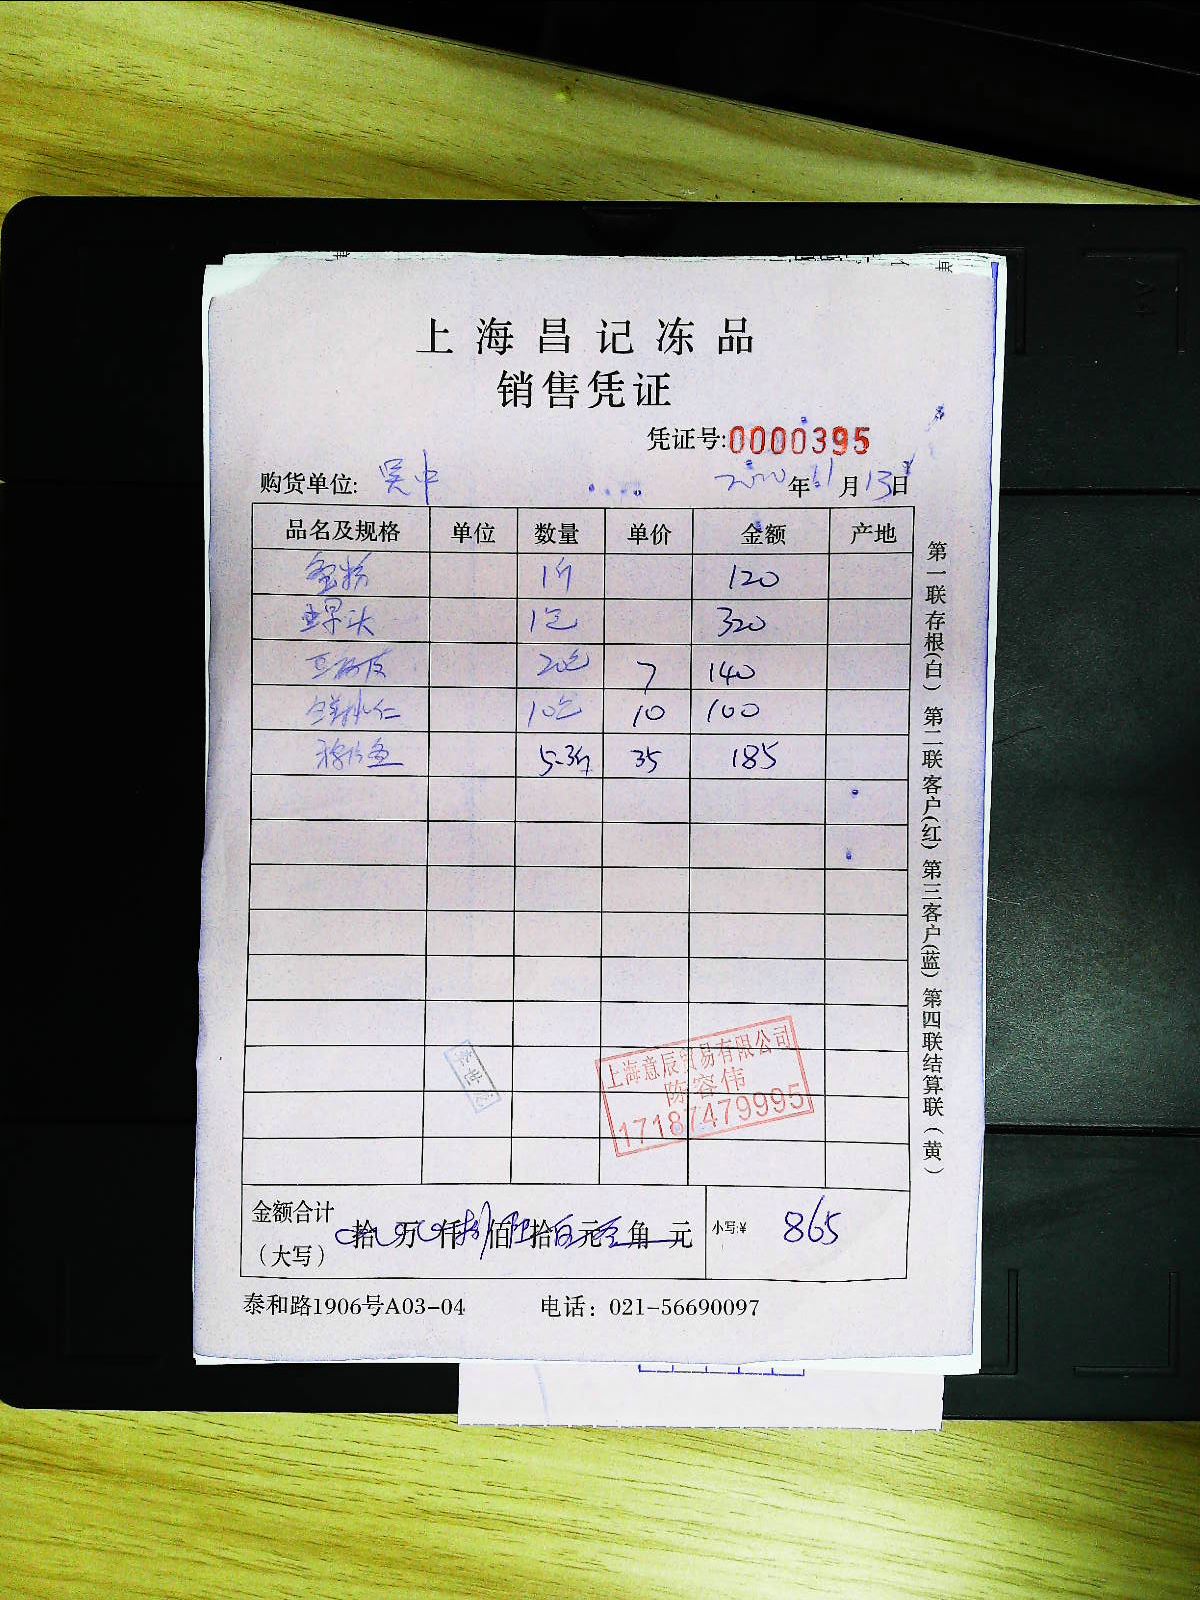 上海昌记冻品
销售凭证
凭证号:0000395
购货单位: 吴中 2020年11月13日
品名及规格 单位 数量 单价 金额 产地
1斤 120
1包 320
20包 7 140
10包 10 100
5-3斤 35 185
第一联存根(白) 第二联客户(红) 第三客户(蓝) 第四联结算联(黄)
上海意辰贸易有限公司
陈容伟
17187479995
金额合计
(大写)
拾 万 仟 佰 拾 元 角 元
小写:¥ 865
泰和路1906号A03-04 电话: 021-56690097